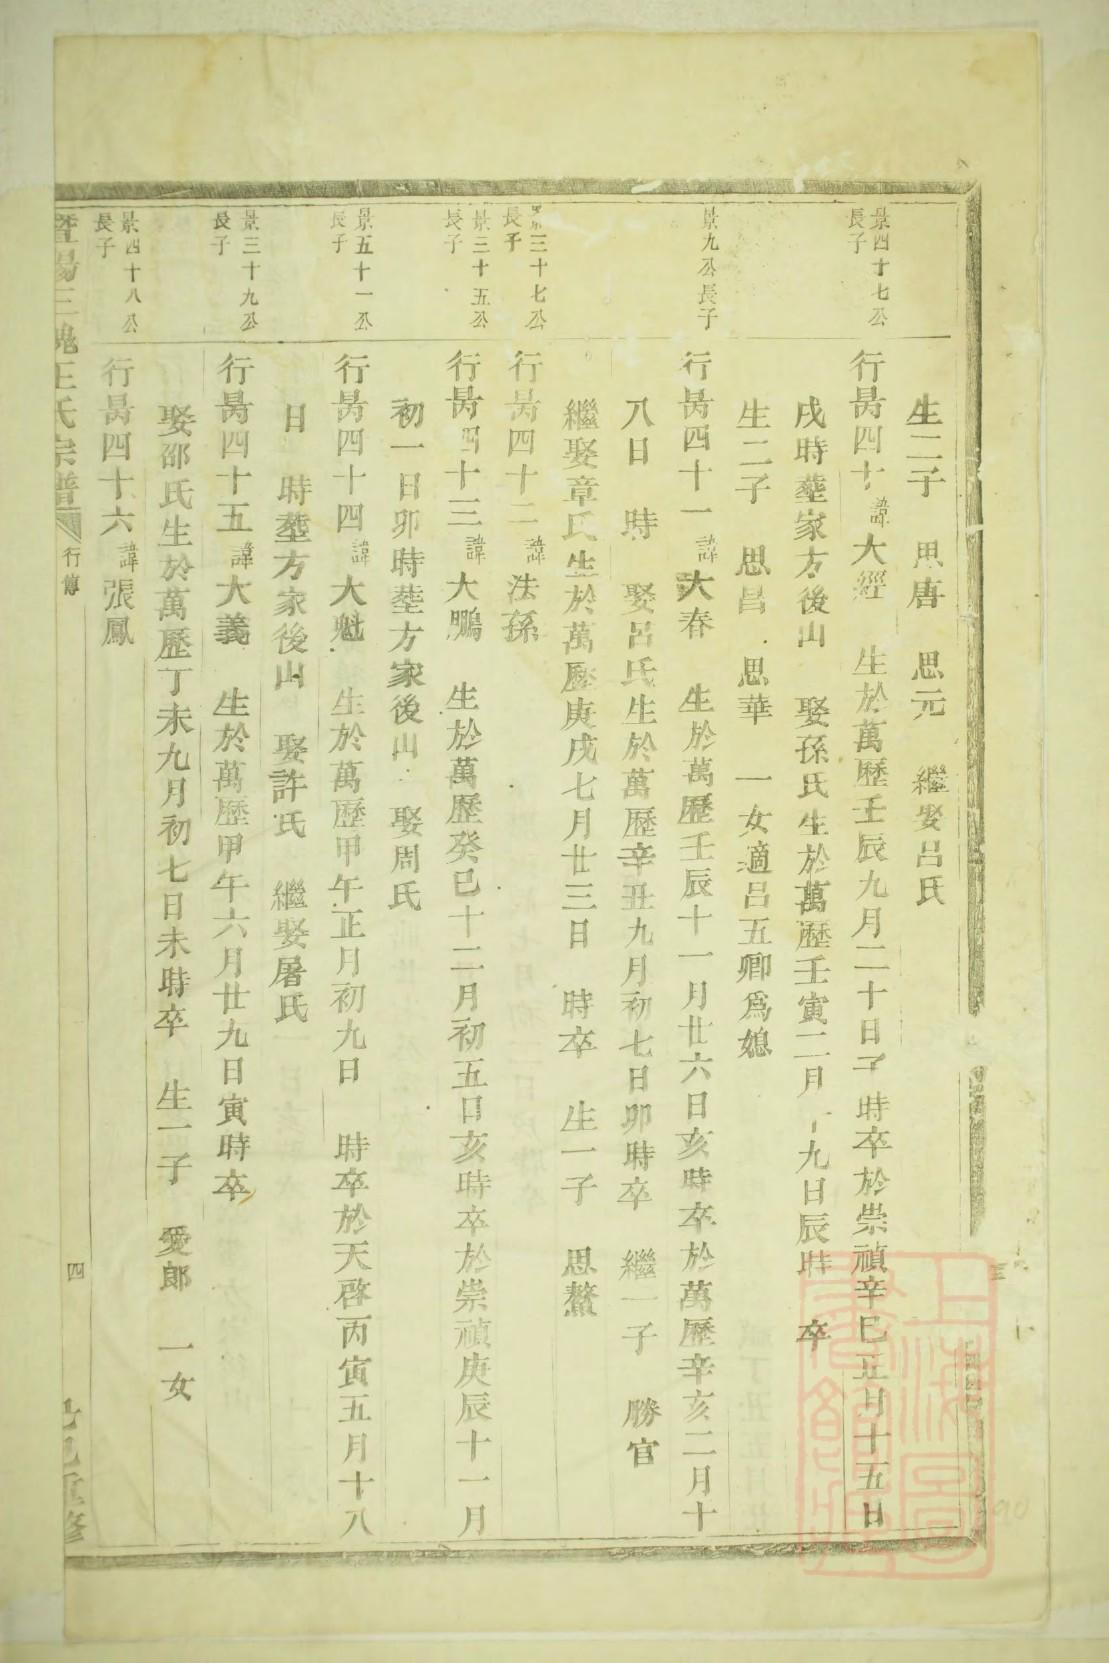 生二子　思唐　思元　繼娶呂氏
景四十七公
長子
行昺四十　諱大經　生於萬歷壬辰九月二十日子時卒於崇禎辛巳五月十五日
戌時塟家方後山　娶孫氏生於萬歷壬寅二月十九日辰時　卒
生二子　思昌　思華　一女適呂五卿爲媳
景九公長子
行昺四十一諱大春　生於萬歷壬辰十一月廿六日亥時卒於萬歷辛亥二月十
八日　時　娶呂氏生於萬歷辛丑九月初七日卯時卒　繼一子　勝官
繼娶章氏生於萬歷庚戌七月廿三日　時卒　生一子　思鰲
景三十七公
長子
行昺四十二諱法孫
景三十五公
長子
行昺四十三諱大鵬　生於萬歷癸巳十二月初五日亥時卒於崇禎庚辰十一月
初一日卯時塟方家後山　娶周氏
景五十一公
長子
行昺四十四諱大魁　生於萬歷甲午正月初九日　時卒於天啓丙寅五月十八
日　時塟方家後山　娶許氏　繼娶屠氏
景三十九公
長子
行昺四十五諱大義　生於萬歷甲午六月廿九日寅時卒
娶邵氏生於萬歷丁未九月初七日未時卒　生一子　愛郎　一女
景四十八公
長子
行昺四十六諱張鳳
暨陽三槐王氏宗譜　行傳　四　重修
上海圖
書館藏